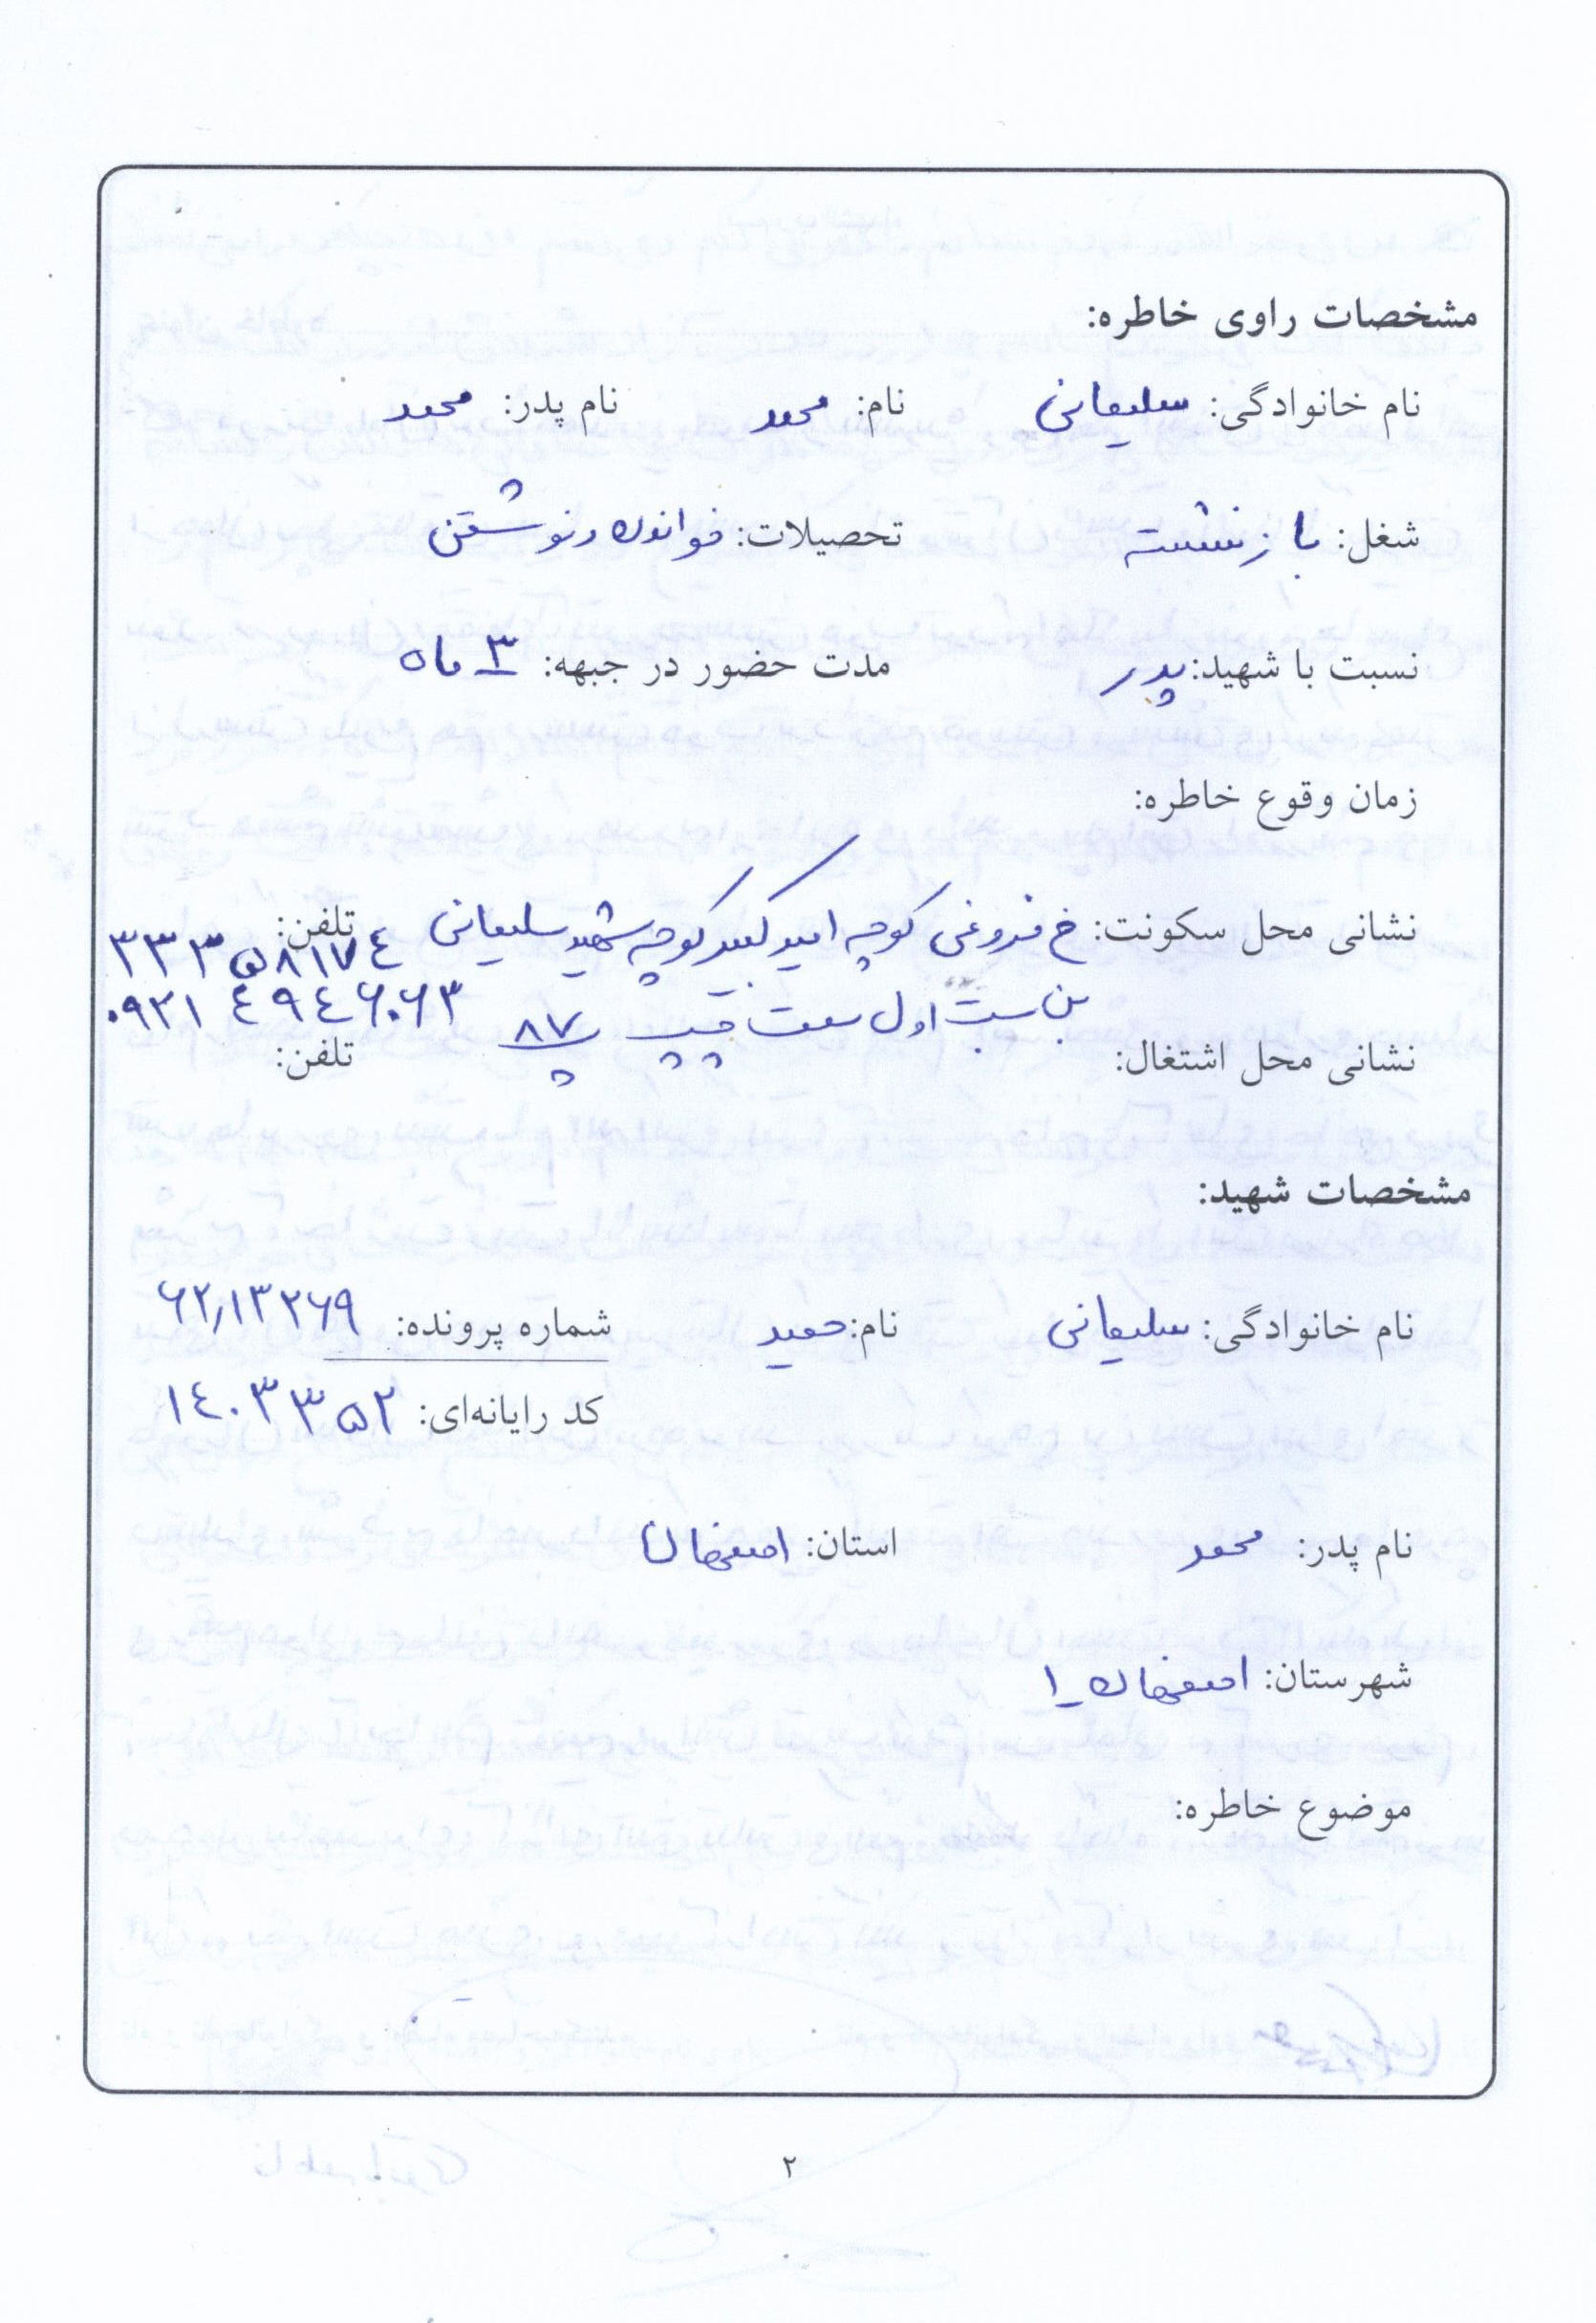 مشخصات راوی خاطره:
نام خانوادگی: سلیمانی نام: محمد نام پدر: محمد
شغل: بازنشسته تحصیلات: خواندن و نوشتن
نسبت با شهید: پدر مدت حضور در جبهه: ۳ ماه
زمان وقوع خاطره:
نشانی محل سکونت: خ فروغی کوچه امیرکبیر کوچه شهید سلیمانی تلفن: ۳۳۳۵۸۱۷۴
بن بست اول سمت چپ پ ۸۷ ۰۹۲۱۴۹۴۶۰۶۳
نشانی محل اشتغال: تلفن:
مشخصات شهید:
نام خانوادگی: سلیمانی نام: حمید شماره پرونده: ۶۲/۱۳۲۶۹
کد رایانه‌ای: ۱۴۰۳۳۵۲
نام پدر: محمد استان: اصفهان
شهرستان: اصفهان_۱
موضوع خاطره:
۲